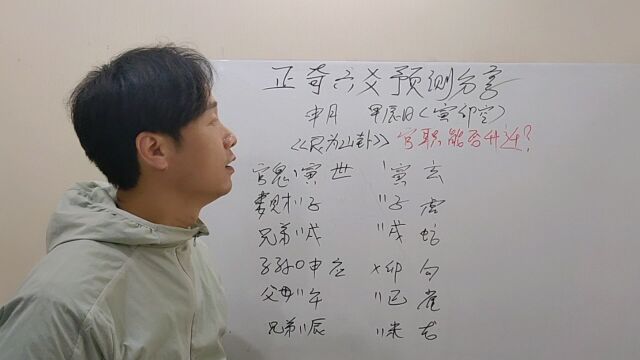 正奇六爻预测分享
申月 甲辰日(寅卯空)
《艮为山卦》官职能否升迁?
官鬼、寅 世 、寅 玄
妻财〃子 〃子 虎
兄弟〃戌 〃戌 蛇
子孙〇申 应 ×卯 勾
父母〃午 〃巳 雀
兄弟〃辰 〃未 龙